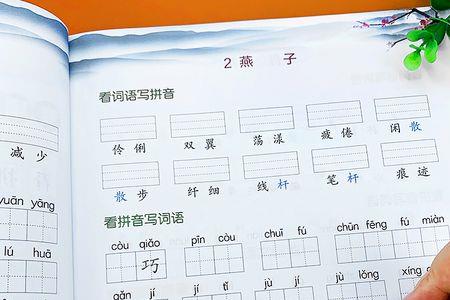 2 燕 子
看词语写拼音
伶 俐 双 翼 荡 漾 疲 倦 闲 散
减 少
散 步 纤 细 线 杆 笔 杆 痕 迹
看拼音写词语
yuān yāng
còu qiǎo pīn còu chuī fú chūn fēng fú miàn
巧
lú huā
gǎn jí jí jù jù lǒng xíng